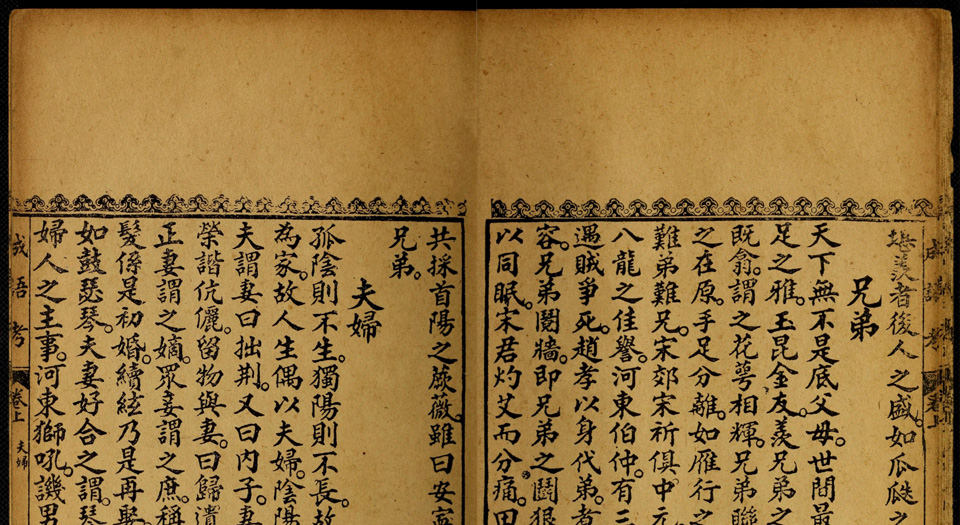 堪羨者後人之盛。如瓜瓞之
兄弟
天下無不是底父母。世間最
足之雅。玉昆金友。羨兄弟之
既翕。謂之花萼相輝。兄弟聯
之在原。手足分離。如雁行之
難弟難兄。宋郊宋祁俱中元
八龍之佳譽。河東伯仲。有三
遇賊爭死。趙孝以身代弟。者
容。兄弟鬩牆。即兄弟之鬪狠
以同眠。宋君灼艾而分痛。田
共採首陽之蕨薇。雖曰安寧
兄弟。
夫婦
孤陰則不生。獨陽則不長。故
為家。故人生偶以夫婦。陰陽
夫謂妻曰拙荆。又曰内子。妻
榮諧伉儷。留物與妻。曰歸遺
正妻謂之嫡。眾妾謂之庶。稱
髮係是初婚。續絃乃是再娶
如鼓瑟琴。夫妻好合之謂。琴
婦人之主事。河東獅吼。譏男
成語考
卷上
夫婦